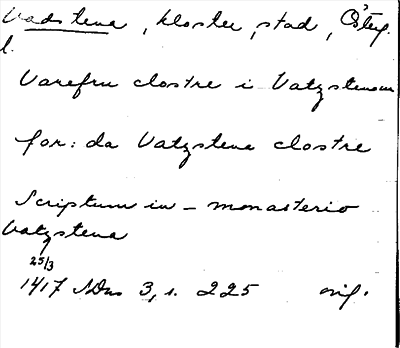 Vadstena, kloster, stad, Östg.
l.
Varefru clostre i Vatzstenom
for: da Vatzstena clostre
Scriptum in – monasterio
Vatzstena
25/3
1417 SDns 3, s. 225 orig.